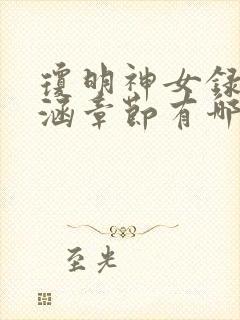 瓊明神女録
涵章節有哪
至光